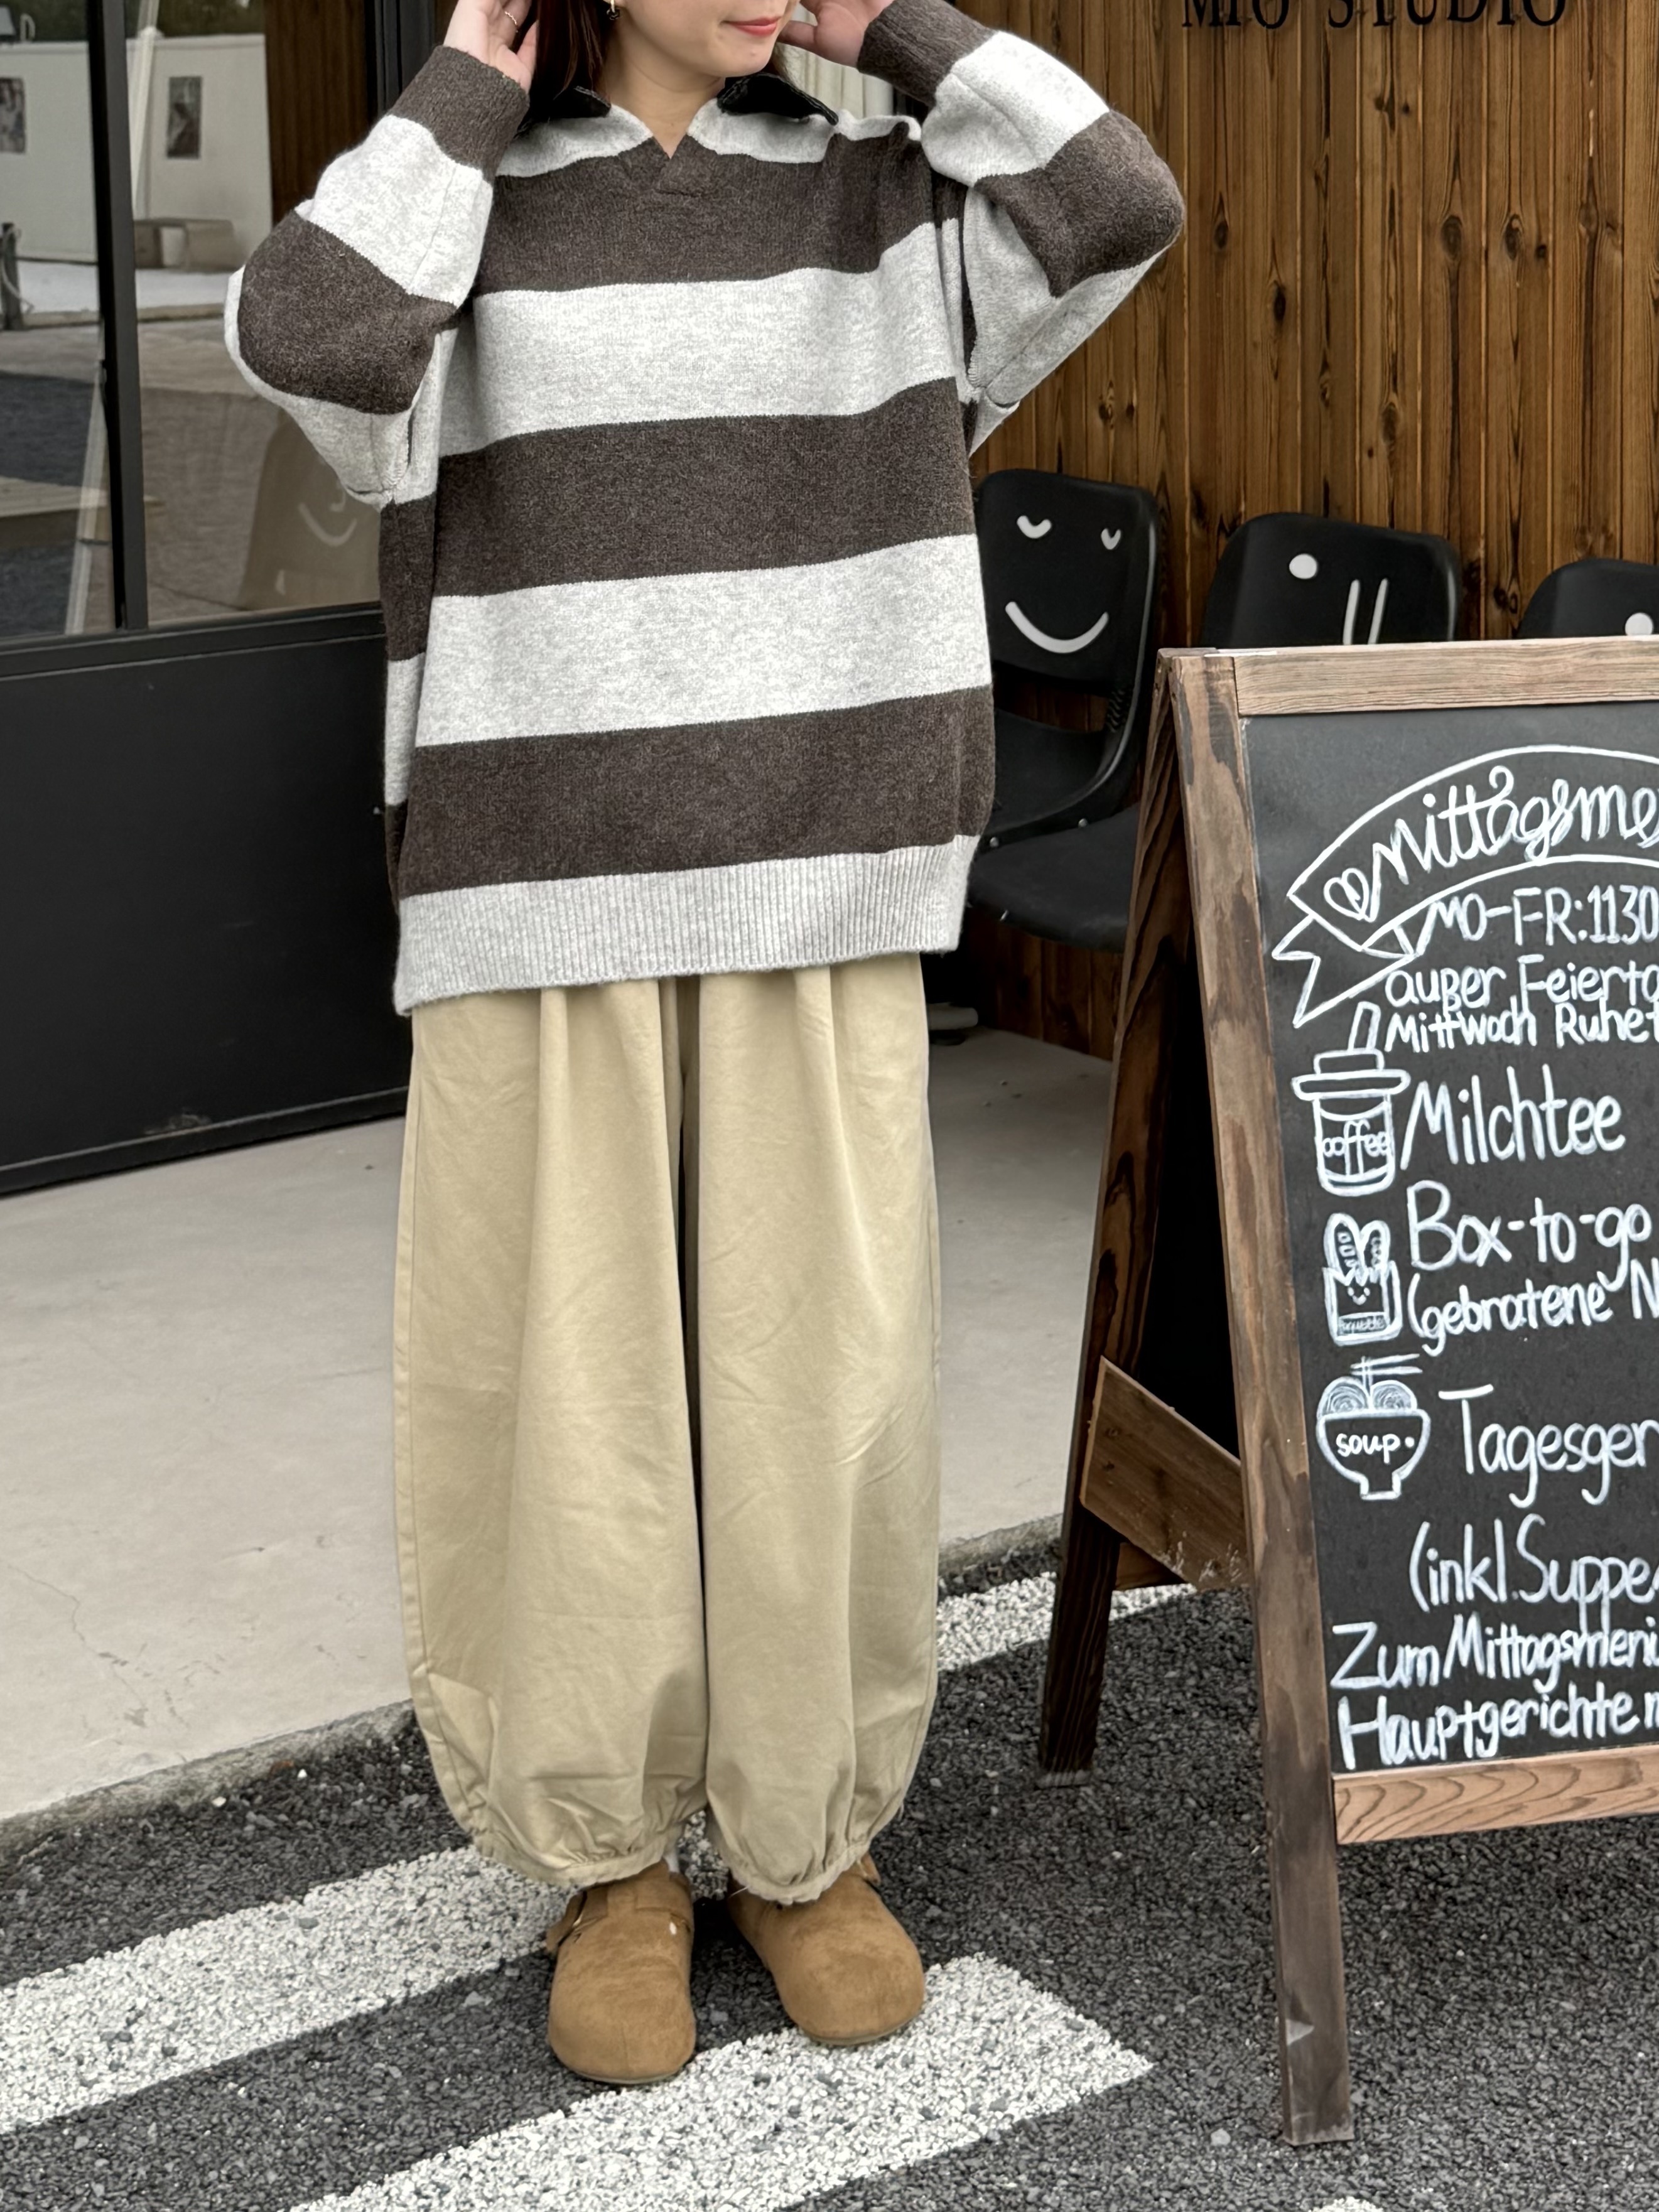 MIO STUDIO
Mittagsme
MO-FR:1130
außer Feierta
Mittwoch Ruhet
coffee
Milchtee
Box-to-go
(gebratene N
baguette
soup
Tagesger
(inkl. Suppe
Zum Mittagsmenü
Hauptgerichte m